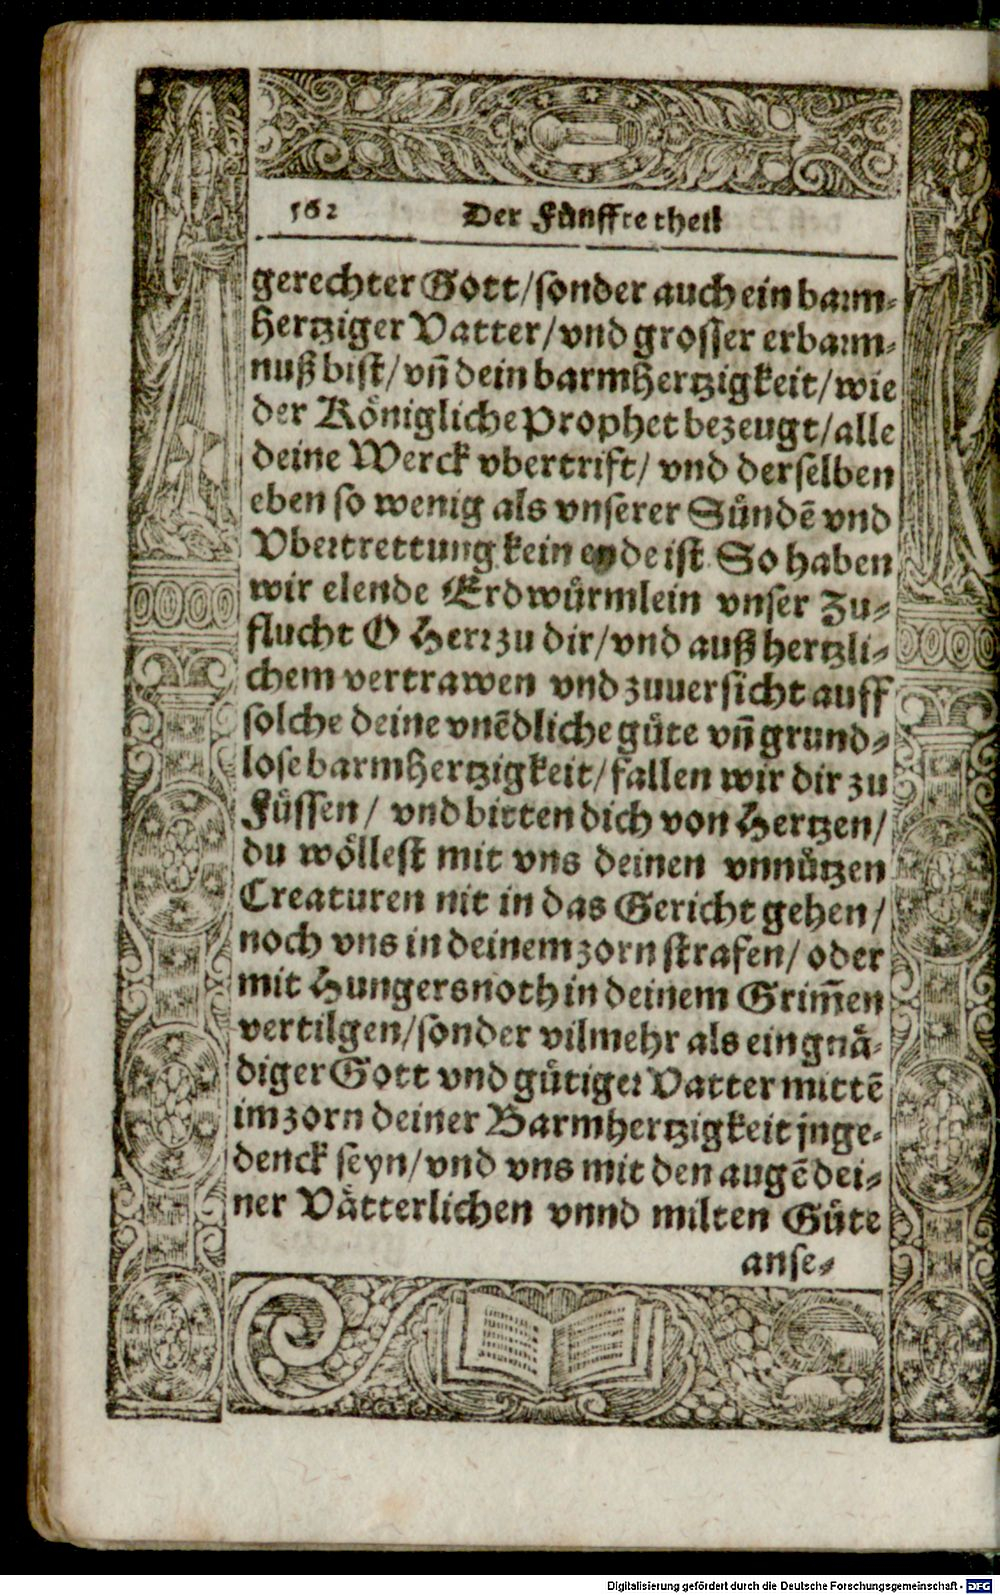 562 Der Fünffte theil
gerechter Gott/sonder auch ein barm⸗
hertziger Vatter/vnd grosser erbarm⸗
nuß bist/vn̄ dein barmhertzigkeit/wie
der Königliche Prophet bezeugt/alle
deine Werck vbertrift/ vnd derselben
eben so wenig als vnserer Sündē vnd
Vbertrettung kein ende ist So haben
wir elende Erdwürmlein vnser Zu⸗
flucht O Herr zu dir/vnd auß hertzli⸗
chem vertrawen vnd zuuersicht auff
solche deine vnēdliche güte vn̄ grund⸗
lose barmhertzigkeit/fallen wir dir zu
Füssen/ vnd bitten dich von Hertzen/
du wöllest mit vns deinen vnnützen
Creaturen nit in das Gericht gehen/
noch vns in deinem zorn strafen/oder
mit Hungersnoth in deinem Grim̄en
vertilgen/sonder vilmehr als ein gnä⸗
diger Gott vnd gütiger Vatter mittē
im zorn deiner Barmhertzigkeit jnge⸗
denck seyn/vnd vns mit den augē dei⸗
ner Vätterlichen vnnd milten Güte
anse⸗
Digitalisierung gefördert durch die Deutsche Forschungsgemeinschaft - DFG